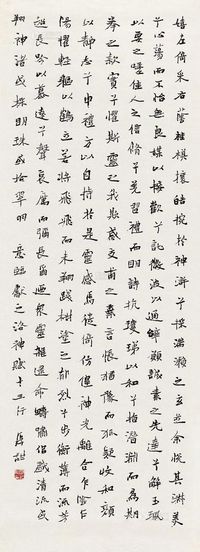 嬉左倚采旄右蔭桂旗攘皓捥於神滸兮採湍瀨之玄芝余悅其淑美
兮心蕩而不怡無良媒以接歡兮託微波以通辭願誠素之先達兮解玉珮
以要之嗟佳人之信脩兮羌習禮而明詩抗瓊珶以和兮指潛淵而為期
眷之款實兮懼斯靈之我欺感交甫之棄言悵猶豫而狐疑收和顏
以靜志兮申禮防以自持於是靈感焉徙倚仿偟神光離合乍陰乍
陽擢輕軀以鶴立若將飛而未翔踐椒塗之郁烈兮步衡薄而流芳
超長吟以慕遠兮聲哀厲而彌長爾迺眾靈雜遝命疇嘯侶或戲清流或
翔神渚或採明珠或拾翠羽 意臨獻之洛神賦十三行